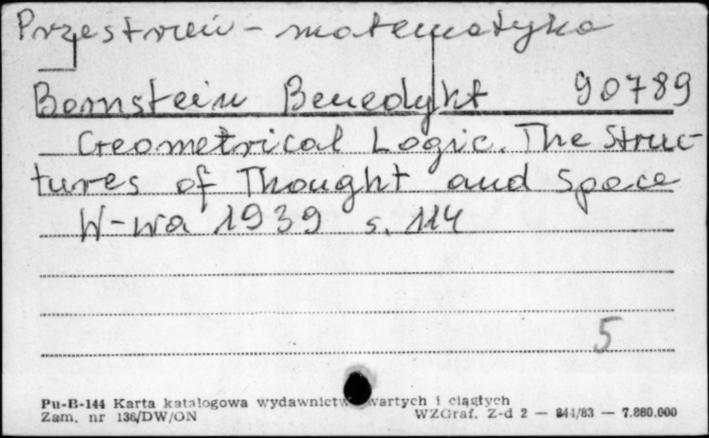 Przestrzeń - matematyka
Bornstein Benedykt 90789
Geometrical Logic. The Struc-
tures of Thought and Space
W-wa 1939 s. 114
5
Pu-B-144 Karta katalogowa wydawnictw zwartych i ciągłych
Zam. nr 136/DW/ON WZGraf. Z-d 2 — 844/83 — 7.880.000